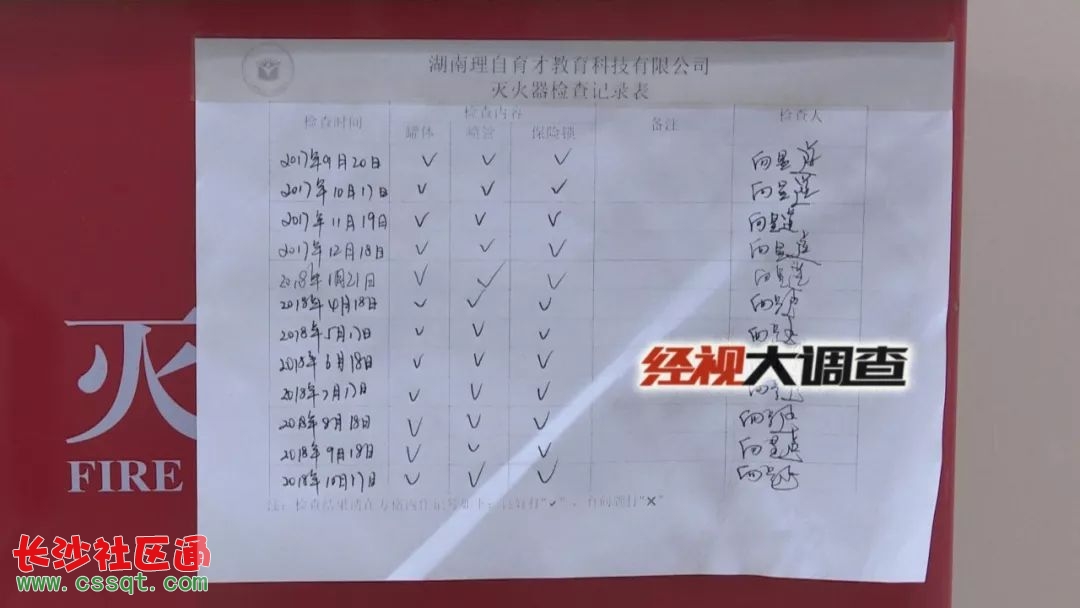 湖南理自育才教育科技有限公司
灭火器检查记录表
检查时间 检查内容 备注 检查人
罐体 喷管 保险锁
2017年9月20日 ✓ ✓ ✓
2017年10月17日 ✓ ✓ ✓
2017年11月19日 ✓ ✓ ✓
2017年12月18日 ✓ ✓ ✓
2018年1月21日 ✓ ✓ ✓
2018年4月18日 ✓ ✓ ✓
2018年5月17日 ✓ ✓ ✓
2018年6月18日 ✓ ✓ ✓
2018年7月17日 ✓ ✓ ✓
2018年8月18日 ✓ ✓ ✓
2018年9月18日 ✓ ✓ ✓
2018年10月17日 ✓ ✓ ✓
注：检查结果请在方格内作记号如下：打“✓”，有问题打“×”
经视大调查
灭
FIRE
长沙社区通
www.cssqt.com